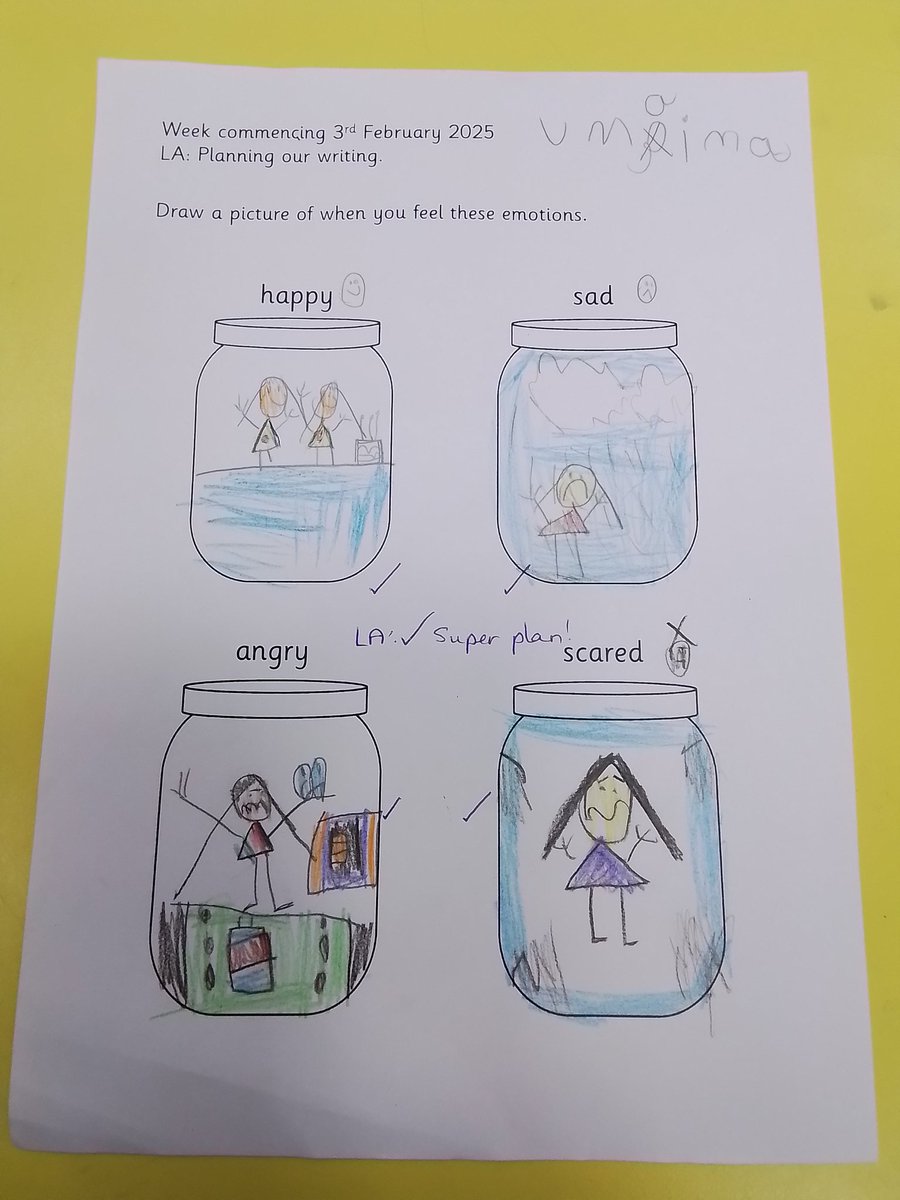 Week commencing 3rd February 2025
LA: Planning our writing.
umaima
Draw a picture of when you feel these emotions.
happy
sad
LA: ✓ Super plan!
angry
scared